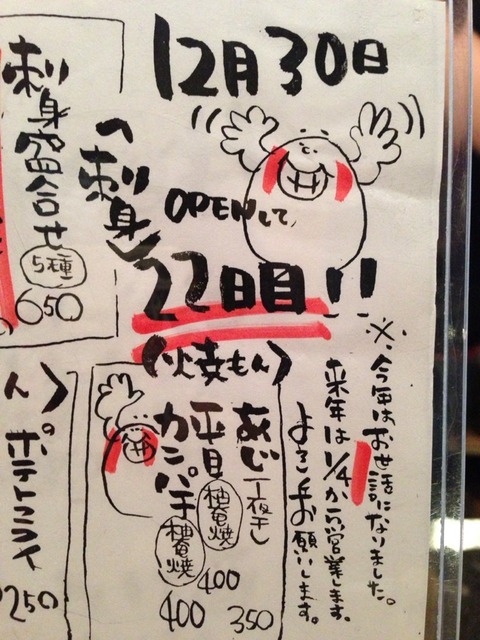 12月30日
OPENして
22日目!!
※今年はお世話になりました。
来年は1/4から営業します。
よろしくお願いします。
〈刺身〉
刺身盛合せ
5種
650
〈焼もん〉
あじ一夜干し
350
平目
柚庵焼
400
カンパチ
柚庵焼
400
ん〉
ポテトフライ
250